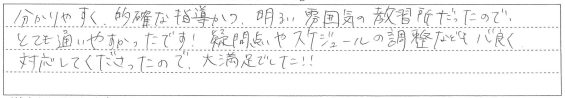 分かりやすく、的確な指導かつ、明るい雰囲気の教習所だったので、
とても通いやすかったです！疑問点やスケジュールの調整なども心良く
対応してくださったので、大満足でした!!